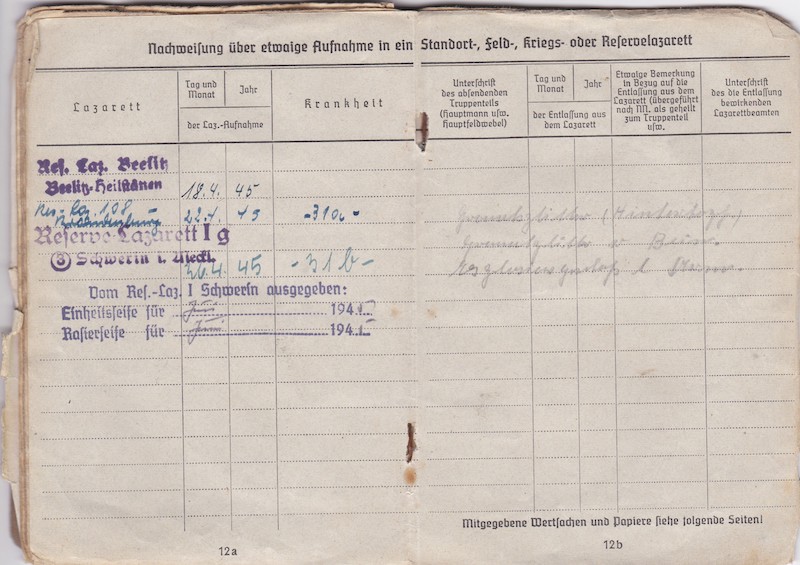 Nachweisung über etwaige Aufnahme in ein Standort-, Feld-, Kriegs- oder Reservelazarett
Lazarett
Tag und Monat
Jahr
der Laz.-Aufnahme
Krankheit
Unterschrift
des absendenden
Truppenteils
(Hauptmann usw.
Hauptfeldwebel)
Tag und Monat
Jahr
der Entlassung aus
dem Lazarett
Etwaige Bemerkung
in Bezug auf die
Entlassung aus dem
Lazarett (übergeführt
nach M. als geheilt
zum Truppenteil
usw.
Unterschrift
des die Entlassung
bewirkenden
Lazarettbeamten
Res. Laz. Beelitz
Beelitz-Heilstätten 18.4. 45
Res. Laz. 108 22.4. 45 -31a-
Reserve-Lazarett I g
③ Schwerin i. Meckl. 26.4. 45 -31b-
Granatsplitter
Granatsplitter
Vom Res.-Laz. I Schwerin ausgegeben:
Einheitsseife für Juni 1945
Rasierseife für Juni 1945
Mitgegebene Wertsachen und Papiere siehe folgende Seiten!
12a
12b